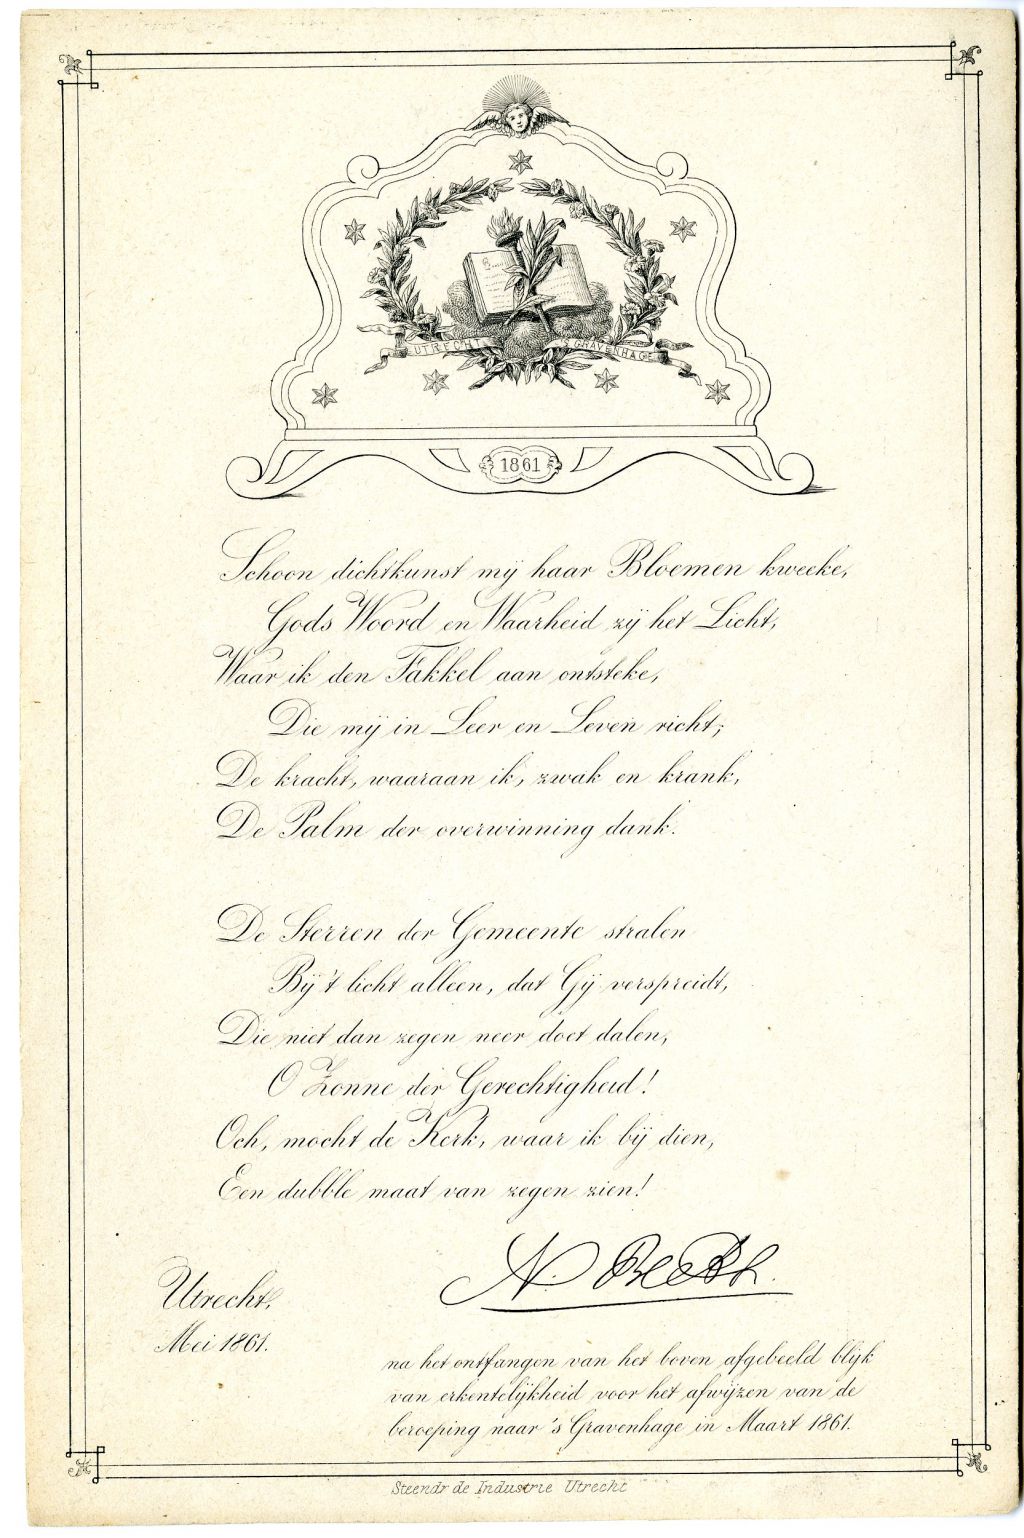 UTRECHT
'S GRAVENHAGE
1861
Schoon dichtkunst mij haar Bloemen kweeke,
Gods Woord en Waarheid zij het Licht,
Waar ik den Fakkel aan ontsteke,
Die mij in Leer en Leven richt;
De kracht, waaraan ik, zwak en krank,
De Palm der overwinning dank.
De Sterren der Gemeente stralen
Bij 't licht alleen, dat Gij verspreidt,
Die niet dan zegen neer doet dalen,
O Zonne der Gerechtigheid!
Och, mocht de Kerk, waar ik bij dien,
Een dubble maat van zegen zien!
N. Beets.
Utrecht,
Mei 1861.
na het ontfangen van het boven afgebeeld blijk
van erkentelijkheid voor het afwijzen van de
beroeping naar 's Gravenhage in Maart 1861.
Steendr de Industrie Utrecht